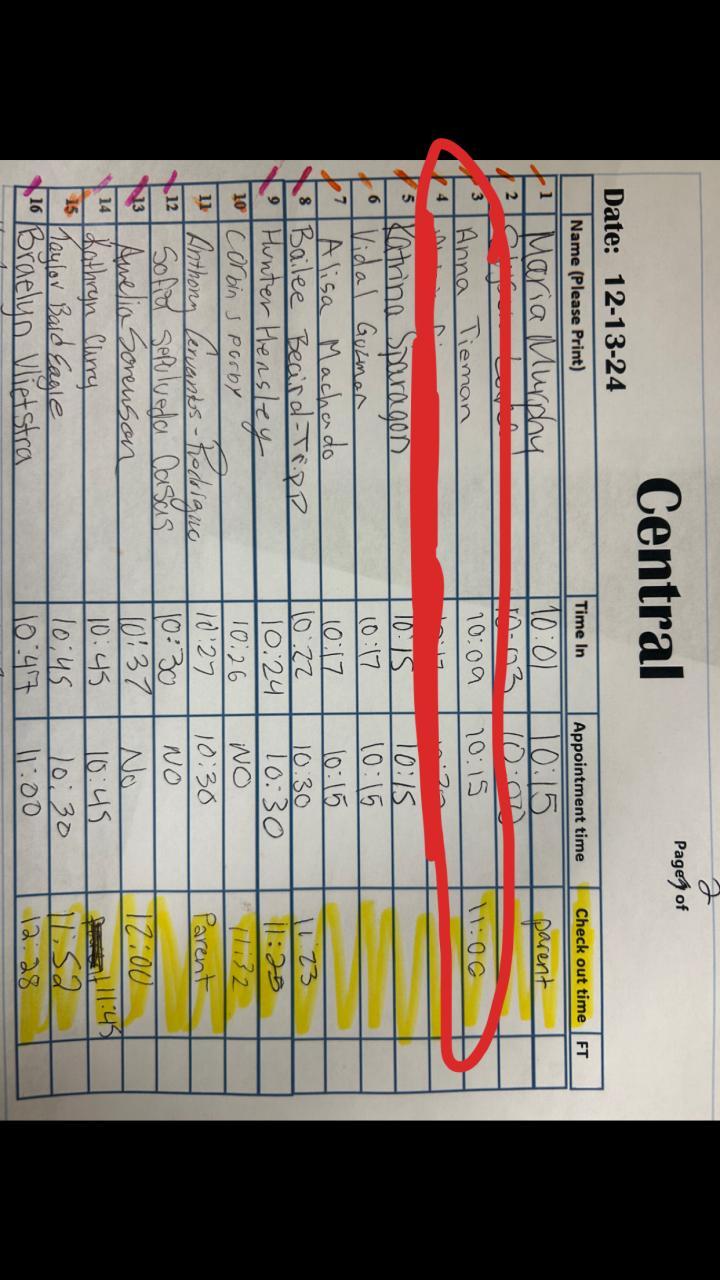 Central
2
Page 1 of
Date: 12-13-24
Name (Please Print) Time In Appointment time Check out time FT
1 Maria Murphy 10:01 10:15 parent
2 10:03
3 Anna Tieman 10:09 10:15 11:06
4
5 Katrina Sparagon 10:15 10:15
6 Vidal Guzman 10:17 10:15
7 Alisa Machado 10:17 10:15
8 Bailee Beaird-Tripp 10:22 10:30 11:23
9 Hunter Hensley 10:24 10:30 11:25
10 Corbin 10:26 NO 11:32
11 Anthony Cervantes-Rodriguez 10:27 10:30 Parent
12 Sofia Sepulveda Casas 10:30 NO
13 Amelia Sorenson 10:37 No 12:00
14 Kathryn Curry 10:45 10:45 11:45
15 Taylor Bald Eagle 10:45 10:30 11:52
16 Braelyn Vlietstra 10:47 11:00 12:28